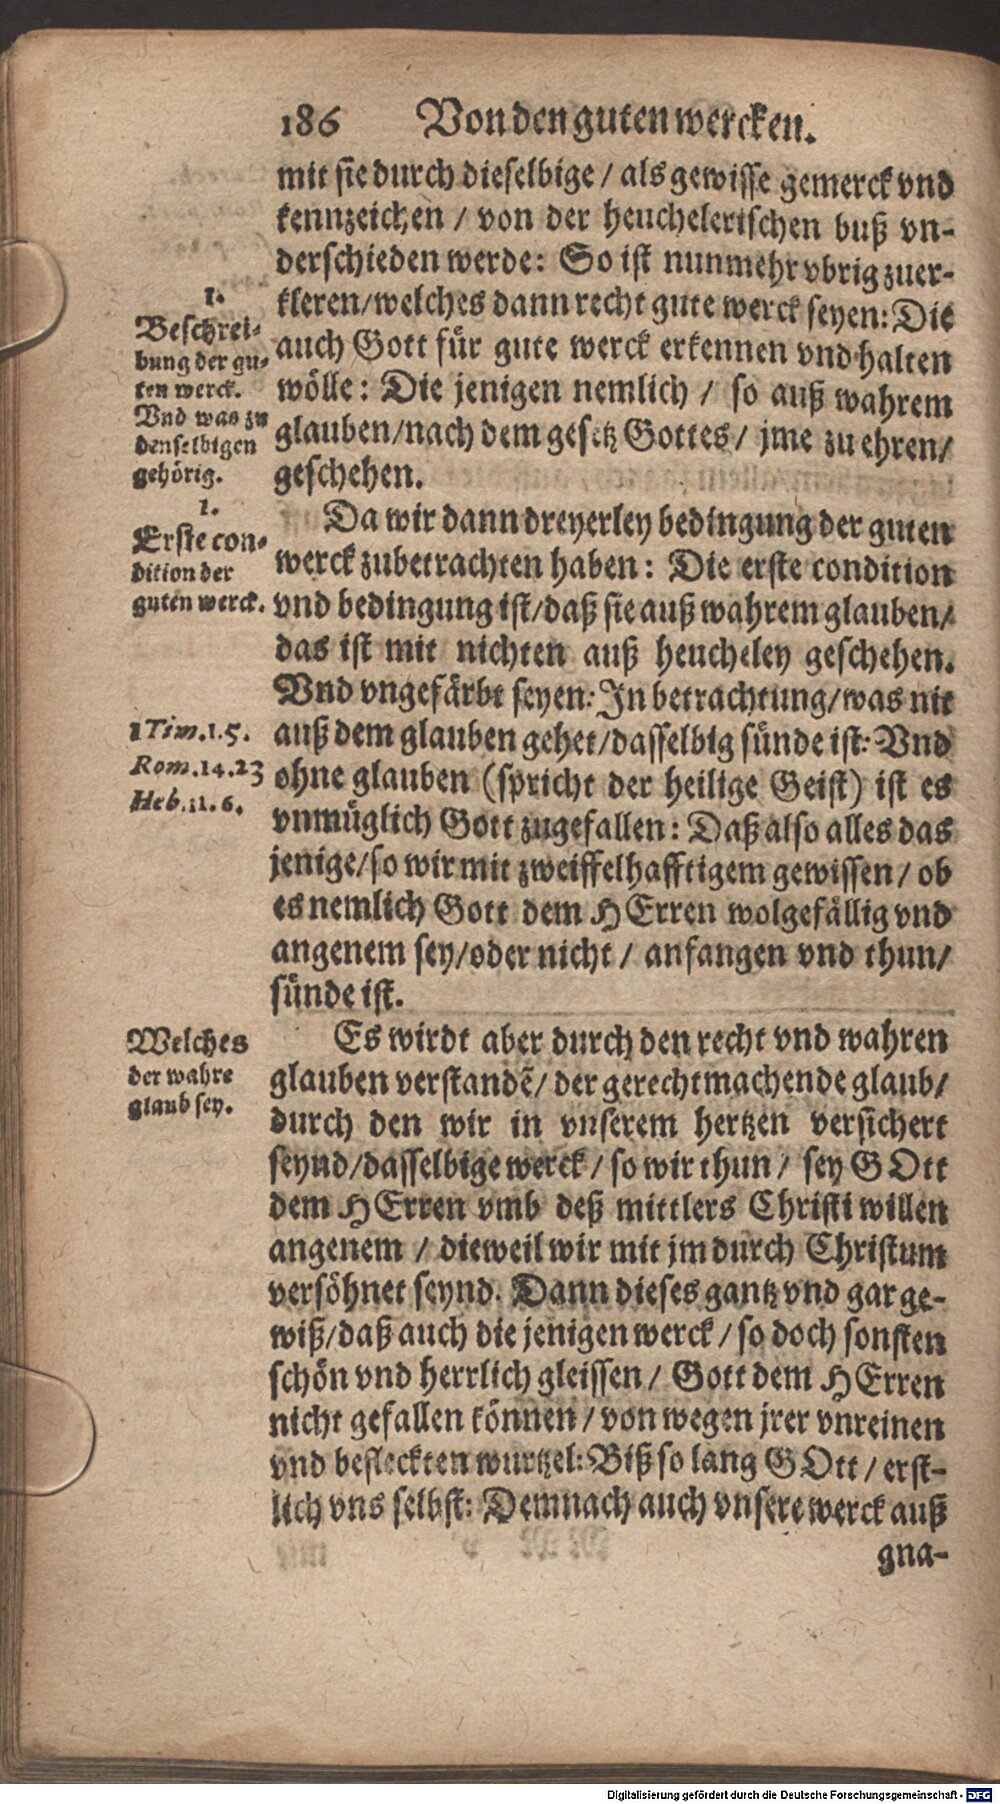 186 Von den guten wercken.
mit sie durch dieselbige / als gewisse gemerck vnd
kennzeichen / von der heuchelerischen buß vn-
derschieden werde: So ist nunmehr vbrig zuer-
kleren/welches dann recht gute werck seyen: Die
auch Gott für gute werck erkennen vnd halten
wölle: Die jenigen nemlich / so auß wahrem
glauben/nach dem gesetz Gottes/ jme zu ehren/
geschehen.
1.
Beschrei-
bung der gu-
ten werck.
Vnd was zu
denselbigen
gehörig.
Da wir dann dreyerley bedingung der guten
werck zubetrachten haben: Die erste condition
vnd bedingung ist/daß sie auß wahrem glauben/
das ist mit nichten auß heucheley geschehen.
Vnd vngefärbt seyen: In betrachtung/was nit
auß dem glauben gehet/dasselbig sünde ist: Vnd
ohne glauben (spricht der heilige Geist) ist es
vnmüglich Gott zugefallen: Daß also alles das
jenige/so wir mit zweiffelhafftigem gewissen / ob
es nemlich Gott dem HErren wolgefällig vnd
angenem sey/oder nicht / anfangen vnd thun/
sünde ist.
1.
Erste con-
dition der
guten werck.
1 Tim.1.5.
Rom.14.23
Heb.11.6.
Es wirdt aber durch den recht vnd wahren
glauben verstandẽ/ der gerechtmachende glaub/
durch den wir in vnserem hertzen versichert
seynd/dasselbige werck / so wir thun / sey GOtt
dem HErren vmb deß mittlers Christi willen
angenem / dieweil wir mit jm durch Christum
versöhnet seynd. Dann dieses gantz vnd gar ge-
wiß/daß auch die jenigen werck / so doch sonsten
schön vnd herrlich gleissen / Gott dem HErren
nicht gefallen können / von wegen jrer vnreinen
vnd befleckten wurtzel: Biß so lang GOtt / erst-
lich vns selbst: Demnach auch vnsere werck auß
gna-
Welches
der wahre
glaub sey.
Digitalisierung gefördert durch die Deutsche Forschungsgemeinschaft - DFG